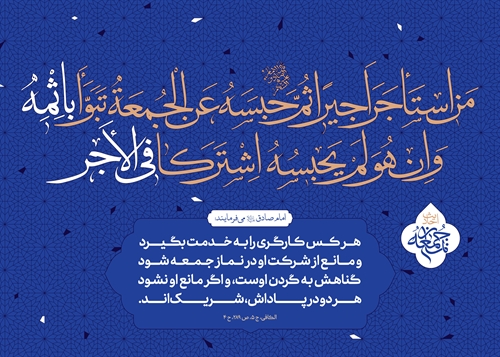 مَن اسْتَأجَرَ أَجِيرًا ثُمَّ حَبَسَهُ عَنِ الْجُمُعَةِ تَبَوَّأَ بِاِثْمِهِ
وَاِن هُوَ لَم يَحبِسهُ اِشتَرَكَا فِی الأَجر
امام صادق می‌فرمایند:
هر کس کارگری را به خدمت بگیرد
و مانع از شرکت او در نماز جمعه شود
گناهش به گردن اوست، و اگر مانع او نشود
هر دو در پاداش، شریک‌اند.
الکافی، ج ۵، ص ۲۸۹، ح ۴